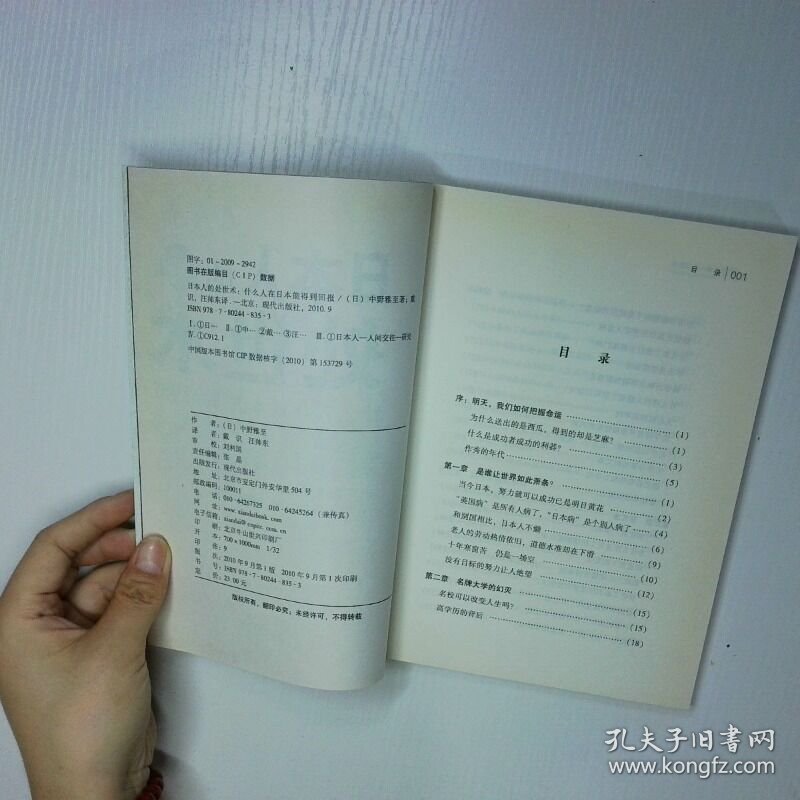 图字：01-2009-2942
图书在版编目（CIP）数据
日本人的处世术：什么人在日本能得到回报／（日）中野雅至著；戴
识，汪帅东译．—北京：现代出版社，2010.9
ISBN 978-7-80244-835-3
Ⅰ．①日… Ⅱ．①中… ②戴… ③汪… Ⅲ．①日本人—人间交往—研究
Ⅳ．①C912.1
中国版本图书馆CIP数据核字（2010）第153729号
作 者：（日）中野雅至
译 者：戴 识 汪帅东
审 校：刘利国
责任编辑：张 晶
出版发行：现代出版社
地 址：北京市安定门外安华里504号
邮政编码：100011
电 话：010-64267325 010-64245264（兼传真）
网 址：www.xiandaibook.com
电子信箱：xiandai@cnpitc.com.cn
印 刷：北京牛山世兴印刷厂
开 本：700×1000mm 1/32
印 张：9
版 次：2010年9月第1版 2010年9月第1次印刷
书 号：ISBN 978-7-80244-835-3
定 价：23.00元
版权所有，翻印必究；未经许可，不得转载
目 录 001
目 录
序：明天，我们如何把握命运 （1）
为什么送出的是西瓜，得到的却是芝麻？ （1）
什么是成功者成功的利器？ （3）
作秀的年代 （5）
第一章 是谁让世界如此萧条？ （1）
当今日本，努力就可以成功已是明日黄花 （1）
“英国病”是所有人病了，“日本病”是个别人病了 （4）
和别国相比，日本人不懒 （6）
老人的劳动热情依旧，道德水准却在下滑 （9）
十年寒窗苦 仍是一场空 （10）
没有目标的努力让人绝望 （12）
第二章 名牌大学的幻灭 （15）
名校可以改变人生吗？ （15）
高学历的背后 （18）
孔夫子旧书网
www.kongfz.com